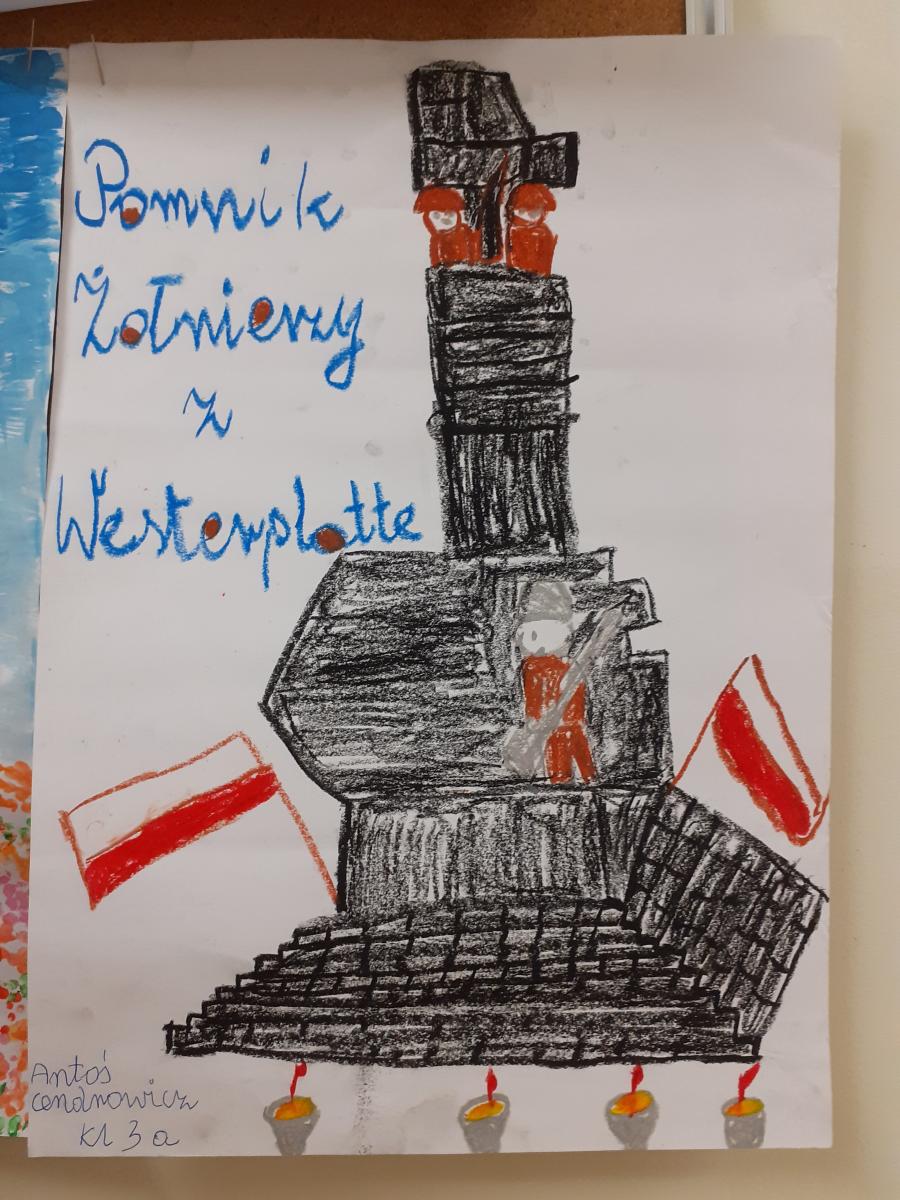 Pomnik
Żołnierzy
z
Westerplatte
Antoś
Cendrowicz
Kl 3 a